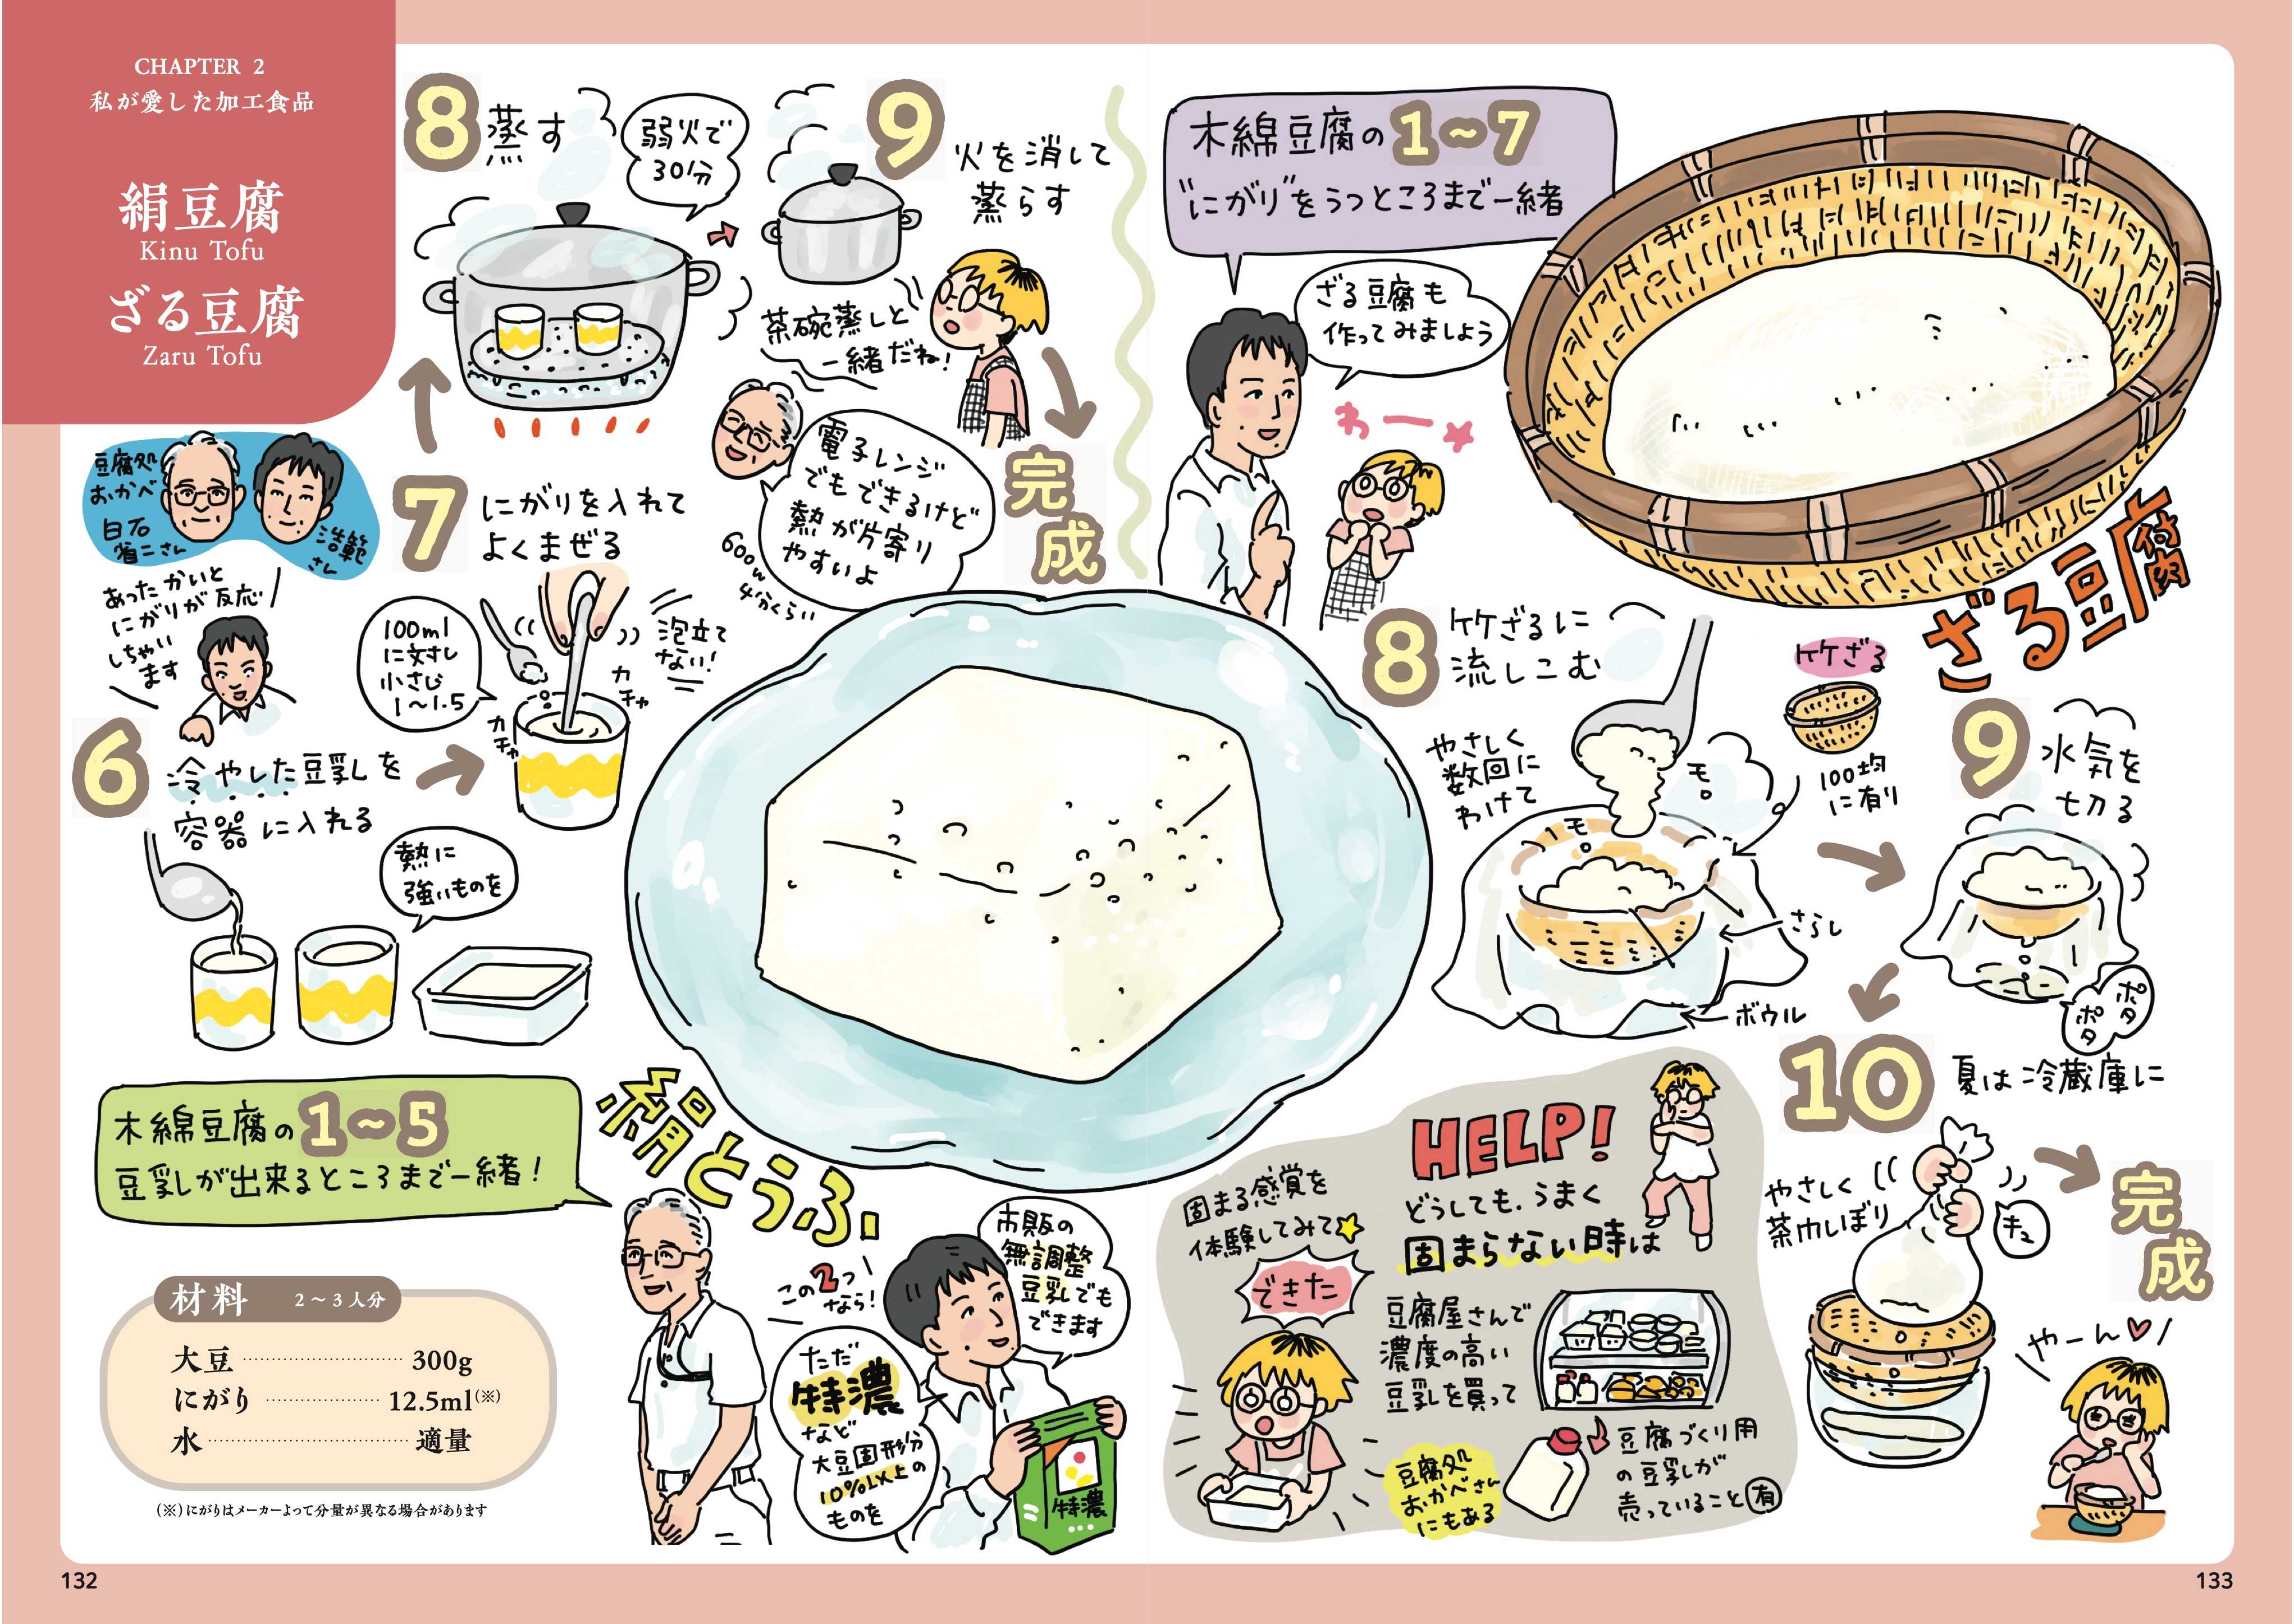 CHAPTER 2
私が愛した加工食品
絹豆腐
Kinu Tofu
ざる豆腐
Zaru Tofu
豆腐処
おかべ
白石
省二さん
浩範
さん
木綿豆腐の1〜5
豆乳が出来るところまで一緒！
材料 2〜3人分
大豆 300g
にがり 12.5ml(※)
水 適量
(※)にがりはメーカーよって分量が異なる場合があります
絹とうふ
この2つ
なら！
市販の
無調整
豆乳でも
できます
ただ
特濃
など
大豆固形分
10%以上の
ものを
特濃
6
冷やした豆乳を
容器に入れる
あったかいと
にがりが反応
しちゃい
ます
熱に
強いものを
7
にがりを入れて
よくまぜる
100ml
に対し
小さじ
1〜1.5
泡立て
ない！
カチャ
カチャ
8
蒸す
弱火で
30分
9
火を消して
蒸らす
茶碗蒸しと
一緒だね！
電子レンジ
でもできるけど
熱が片寄り
やすいよ
600w
4分くらい
完成
木綿豆腐の1〜7
"にがり"をうつところまで一緒
ざる豆腐も
作ってみましよう
わー
ざる豆腐
8
竹ざるに
流しこむ
やさしく
数回に
わけて
モロ
モロ
竹ざる
100均
に有り
さらし
ボウル
9
水気を
切る
ポタ
ポタ
10
夏は冷蔵庫に
やさしく
茶巾しぼり
キュ
完成
やーん♡
HELP!
どうしても、うまく
固まらない時は
豆腐屋さんで
濃度の高い
豆乳を買って
固まる感覚を
体験してみて☆
できた
豆腐処
おかべさん
にもある
豆腐づくり用
の豆乳が
売っていること有
132
133